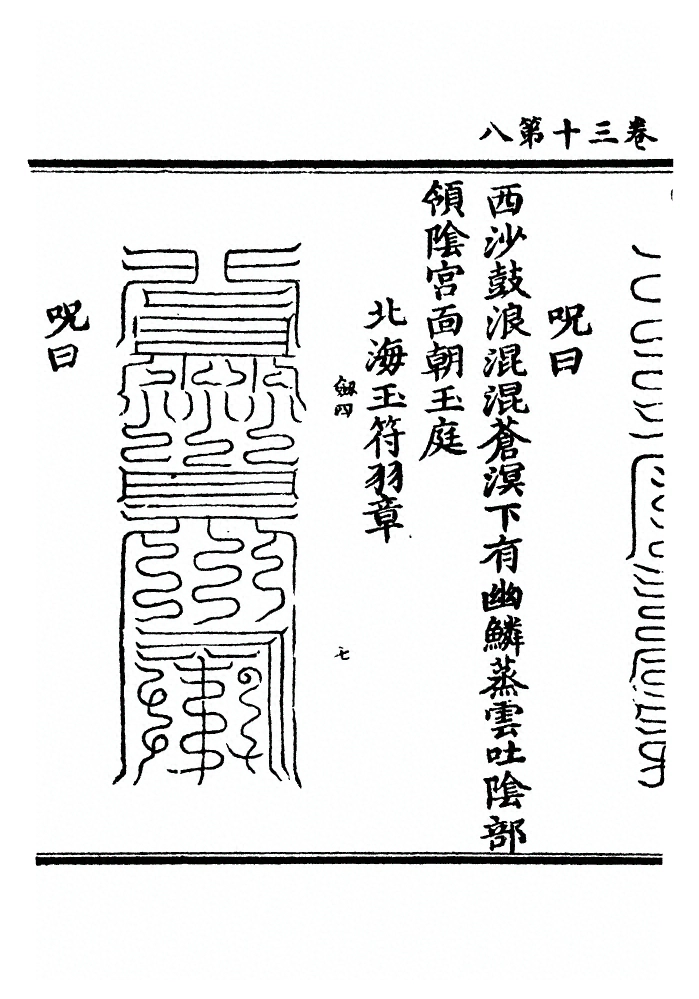 卷三十第八
呪曰
西沙鼓浪混混蒼溟下有幽鱗蒸雲吐陰部
領陰宮面朝玉庭
北海玉符羽章
劔四
七
呪曰